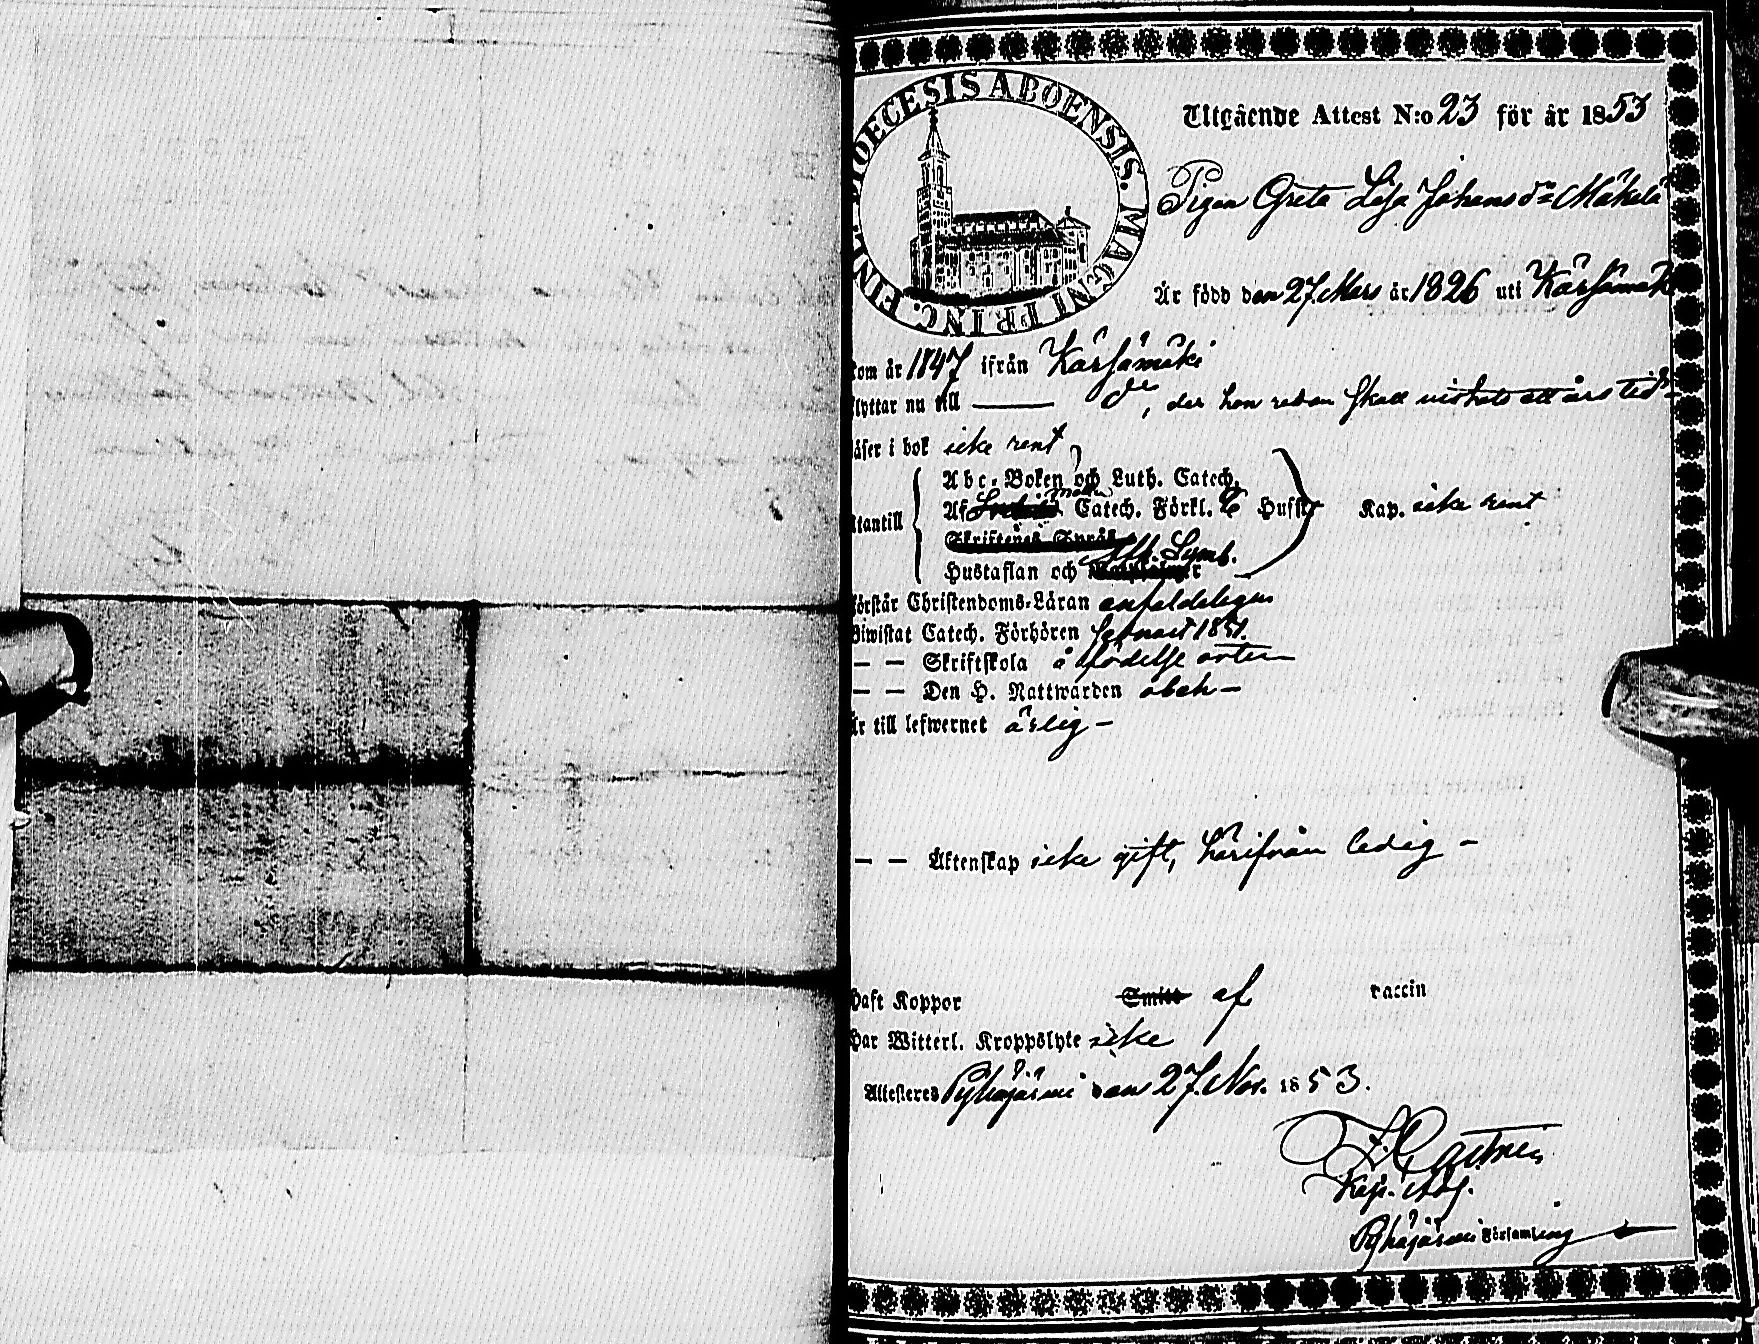 DIOECESIS ABOENSIS. MAGNI PRINC. FINL.
Utgående Attest N:o 23 för år 1853
Pigan Greta Lisa Johansdr Mäkelä
Är född den 27 Mars år 1826 uti Kärsämäki
Kom år 1847 ifrån Kärsämäki
Flyttar nu till — do, der hon redan skall vistats ett års tid -
Läser i bok icke rent
Abc-Boken och Luth. Catech.
Utantill Af Catech. Förkl. Husfl. Kap. icke rent
Skriftenes Språk
Hustaflan och Ath. Symb.
Förstår Christendoms-Läran enfaldeligen
Biwistat Catech. Förhören senast 1851.
— — Skriftskola å födelse orten
— — Den H. Nattwarden obeh —
Är till lefwernet ärlig —
— — Äktenskap icke gift, härifrån ledig —
Haft Koppor Smitt af vaccin
Har Witterl. Kroppslyte icke
Attesteras Pyhäjärvi den 27. Nov. 1853.
Kap. Adj.
Pyhäjärvi Församling